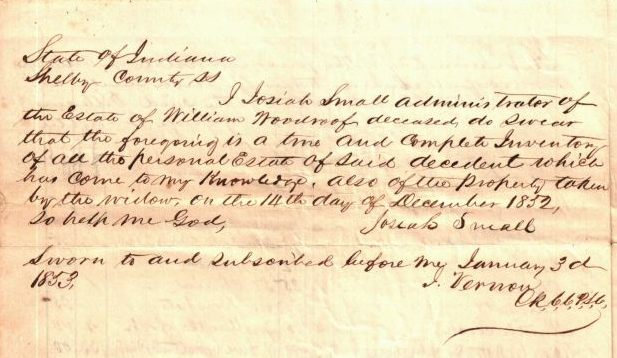 State of Indiana
Shelby County SS
I Josiah Small administrator of
the Estate of William Woodroof deceased do swear
that the foregoing is a true and Complete Inventory
of all the personal Estate of said decedent which
has Come to my Knowledge, also of the Property taken
by the widow, on the 14th day of December 1852,
So help me God,
Josiah Small
Sworn to and subscribed before me January 3d
1853,
J. Vernon